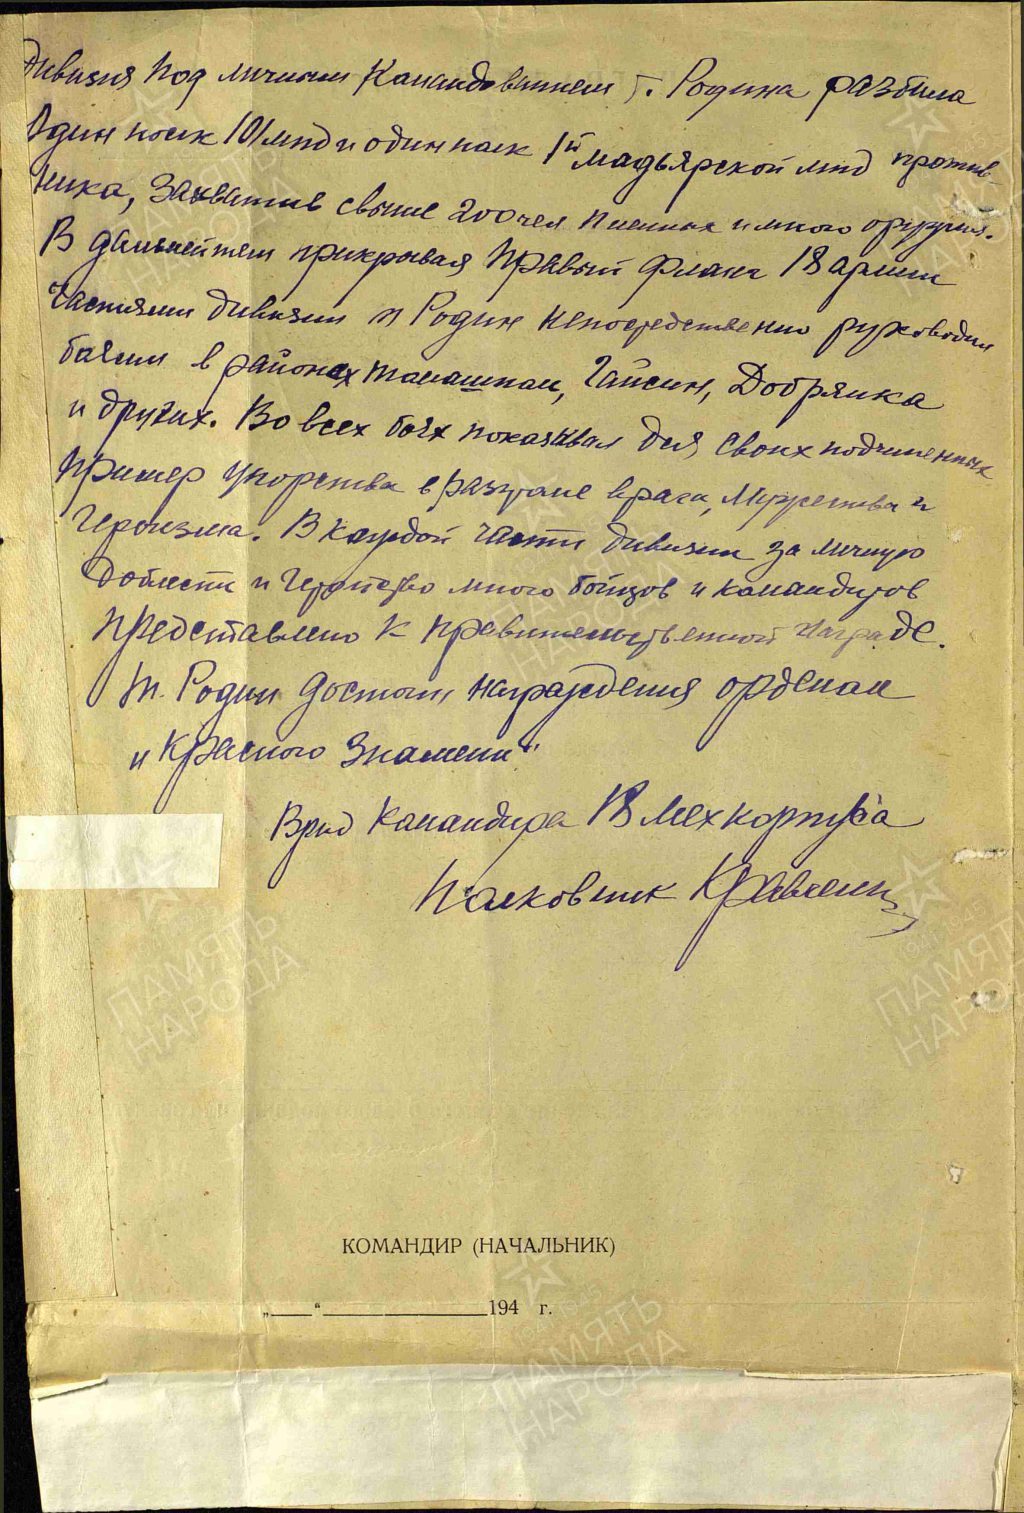 Дивизия под личным командованием т. Родина разбила
Один полк 101 мпд и один полк 1й мадьярской мпд против-
ника, захватив свыше 200 чел пленных и много оружия.
В дальнейшем прикрывая правый фланг 18 армии
частями дивизии т Родин непосредственно руководил
боями в районах Томашполь, Гайсин, Добрянка
и других. Во всех боях показывал для своих подчиненных
пример упорства в разгроме врага, мужества и
героизма. В каждой части дивизии за личную
доблесть и геройство много бойцов и командиров
представлено к правительственной награде.
т. Родин достоин награждения орденом
„Красного Знамени"
Врид командира 18 мехкорпуса
Полковник
КОМАНДИР (НАЧАЛЬНИК)
„___"____________194 г.
ПАМЯТЬ НАРОДА